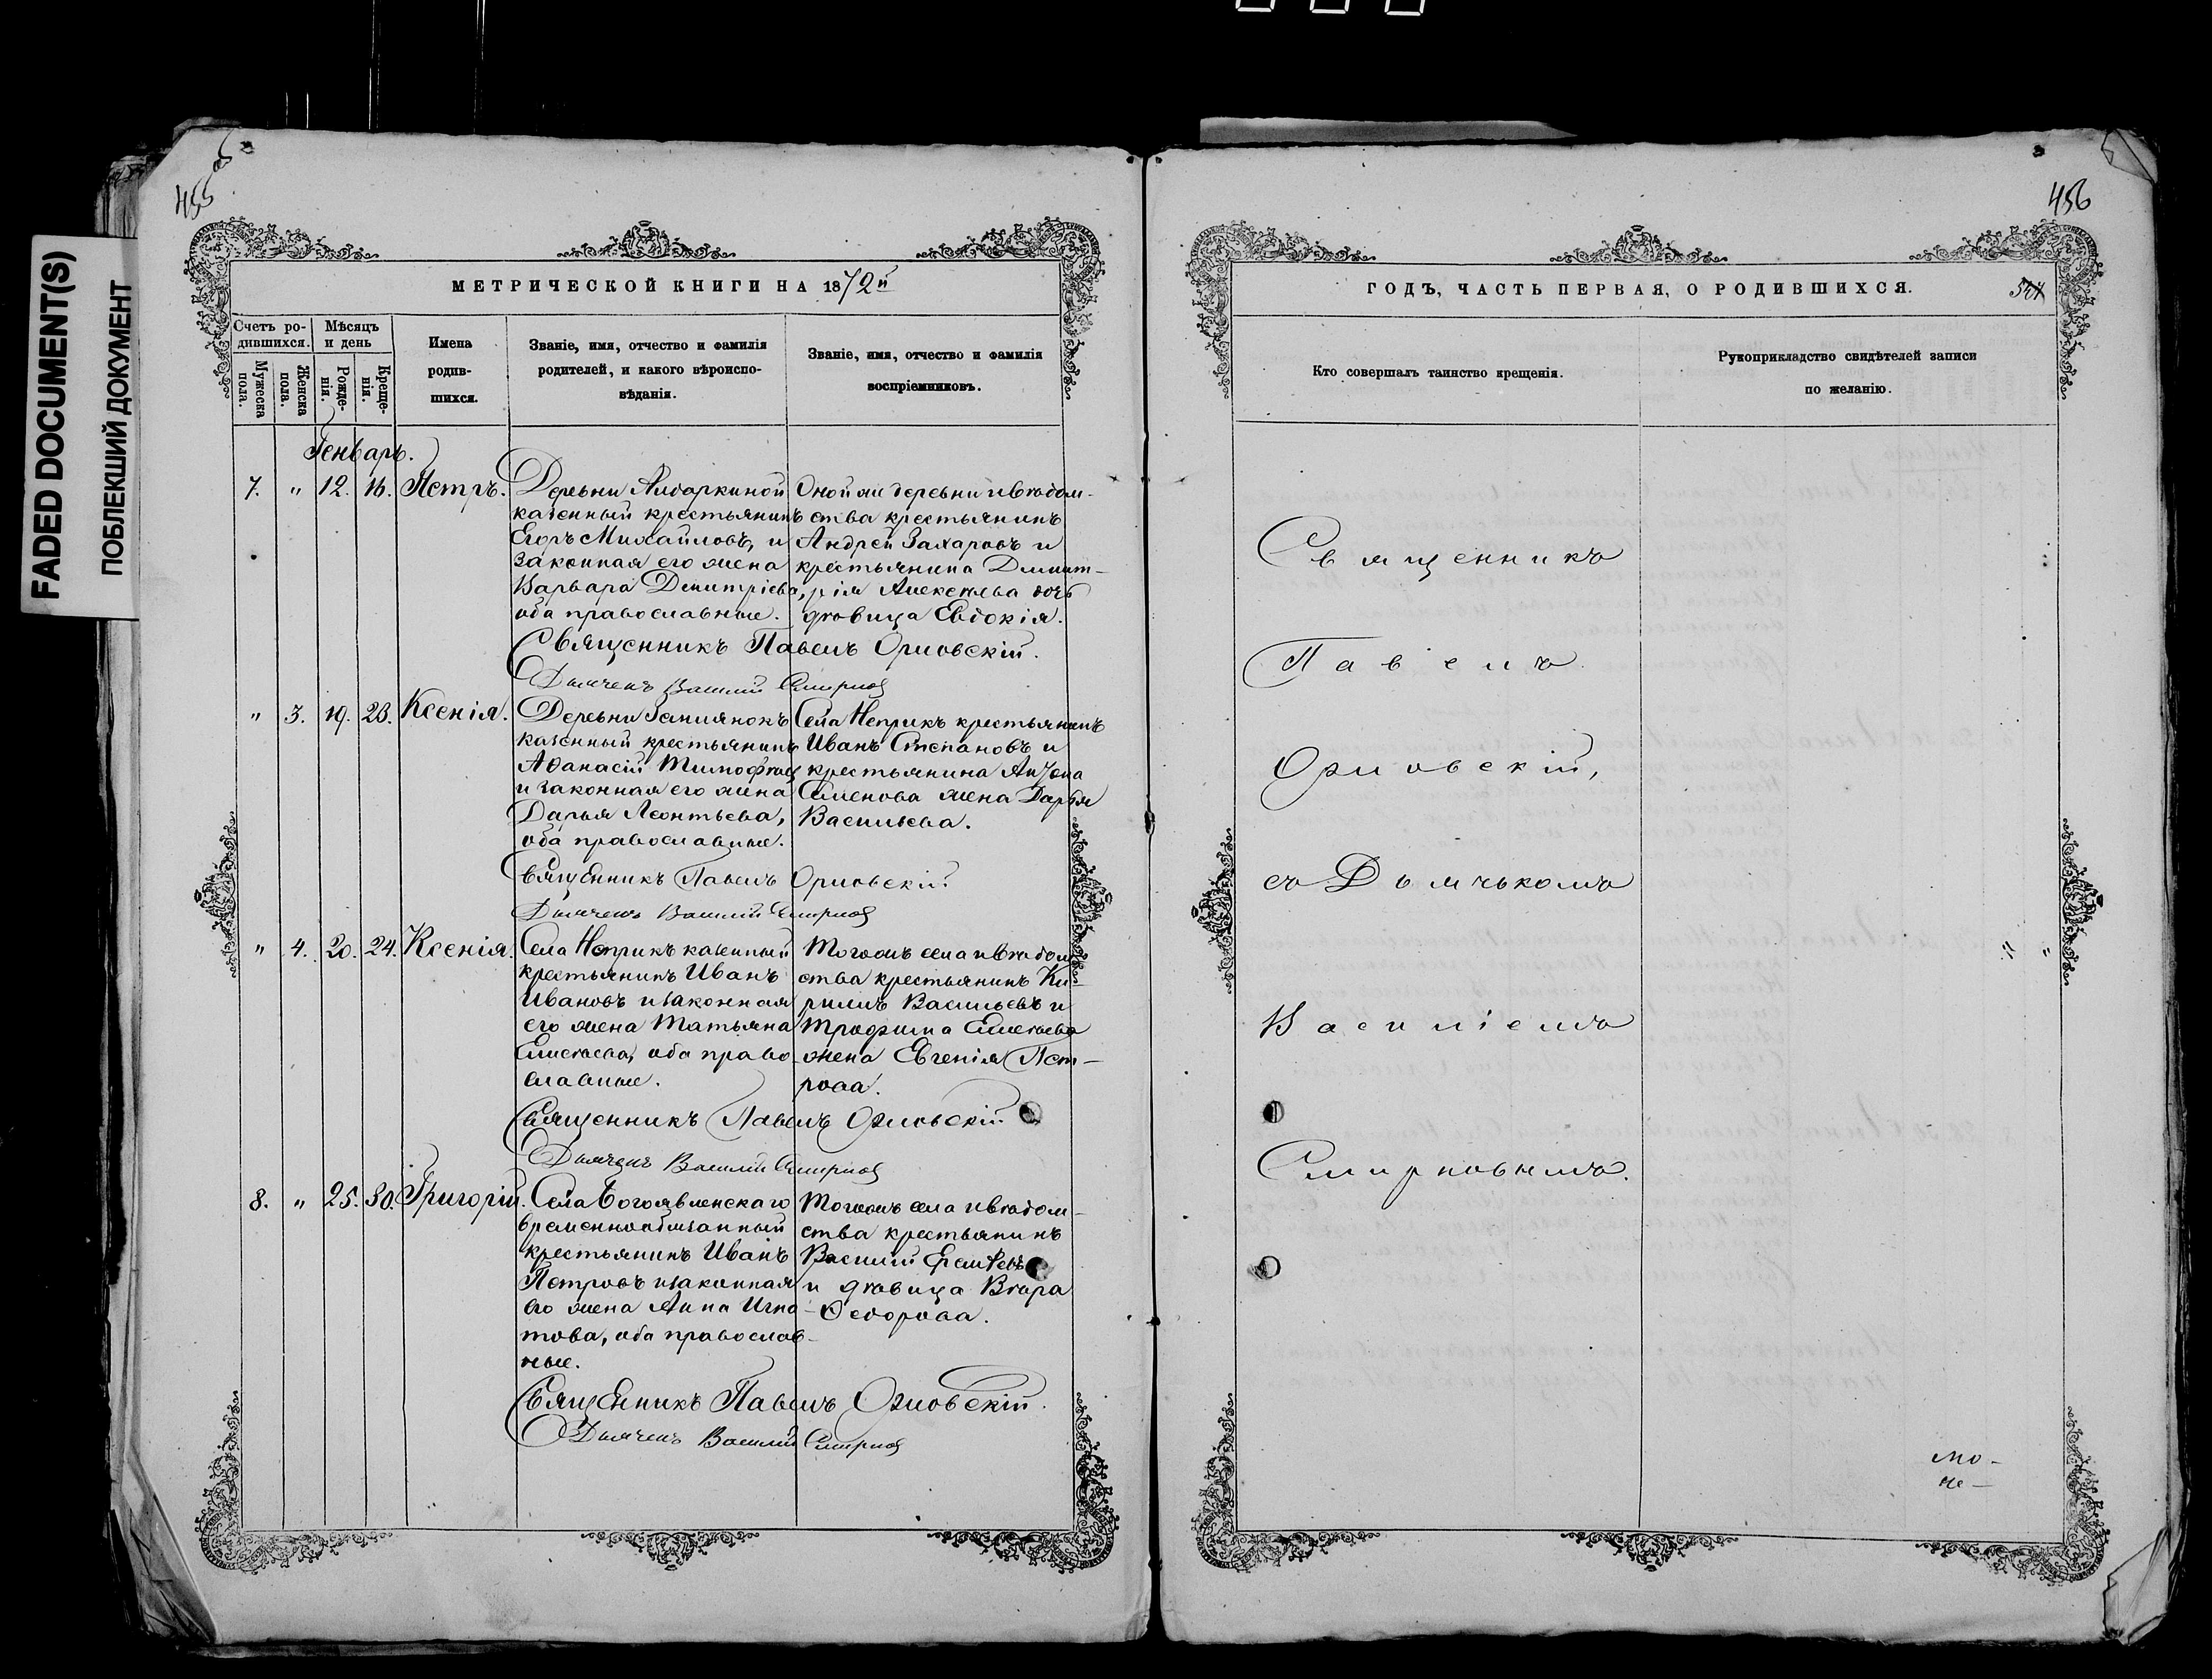 FADED DOCUMENT(S)
ПОБЛЕКШИЙ ДОКУМЕНТ
455
МЕТРИЧЕСКОЙ КНИГИ НА 1872й
Счетъ родившихся.
Мѣсяцъ и день
Мужеска пола.
Женска пола.
Рожденія.
Крещенія.
Имена
родив-
шихся.
Званіе, имя, отчество и фамилія
родителей, и какого вѣроиспо-
вѣданія.
Званіе, имя, отчество и фамилія
воспріемниковъ.
Генварь.
7. " 12. 16. Петръ.
Деревни Алдаркиной
казенный крестьянинъ
Егоръ Михайловъ, и
законная его жена
Варвара Димитріева,
оба православные.
Оной же деревни и вѣдом-
ства крестьянинъ
Андрей Захаровъ и
крестьянина Димит-
рія Алексѣева дочь
дѣвица Евдокія.
Священникъ Павелъ Орловскій.
Дьячекъ Василій Смирнов
" 3. 19. 23. Ксенія.
Деревни Землянокъ
казенный крестьянинъ
Аѳанасій Тимофѣев
и законная его жена
Дарья Леонтьева,
оба православные.
Села Неприкъ крестьянинъ
Иванъ Степановъ и
крестьянина
Семенова жена Дарья
Васильева.
Священникъ Павелъ Орловскій
Дьячекъ Василій Смирнов
" 4. 20. 24. Ксенія.
Села Неприкъ казенный
крестьянинъ Иванъ
Ивановъ и законная
его жена Татьяна
Елисѣева, оба право-
славные.
Тогожъ села и вѣдом
ства крестьянинъ Ки-
рилъ Васильевъ и
Трофима Елисѣева
жена Евгенія Пет-
рова.
Священникъ Павелъ Орловскій
Дьячекъ Василій Смирнов
8. " 25. 30. Григорій.
Села Богоявленскаго
временнообязанный
крестьянинъ Иванъ
Петровъ и законная
его жена Анна Игна-
това, оба православ-
ные.
Тогожъ села и вѣдом-
ства крестьянинъ
Василій
и дѣвица Вѣра
Ѳедорова.
Священникъ Павелъ Орловскій.
Дьячекъ Василій Смирнов
456
ГОДЪ, ЧАСТЬ ПЕРВАЯ, О РОДИВШИХСЯ.
Кто совершалъ таинство крещенія.
Рукоприкладство свидѣтелей записи
по желанію.
Священникъ
Павелъ
Орловскій,
съ Дьячькомъ
Василіемъ
Смирновымъ.
" "